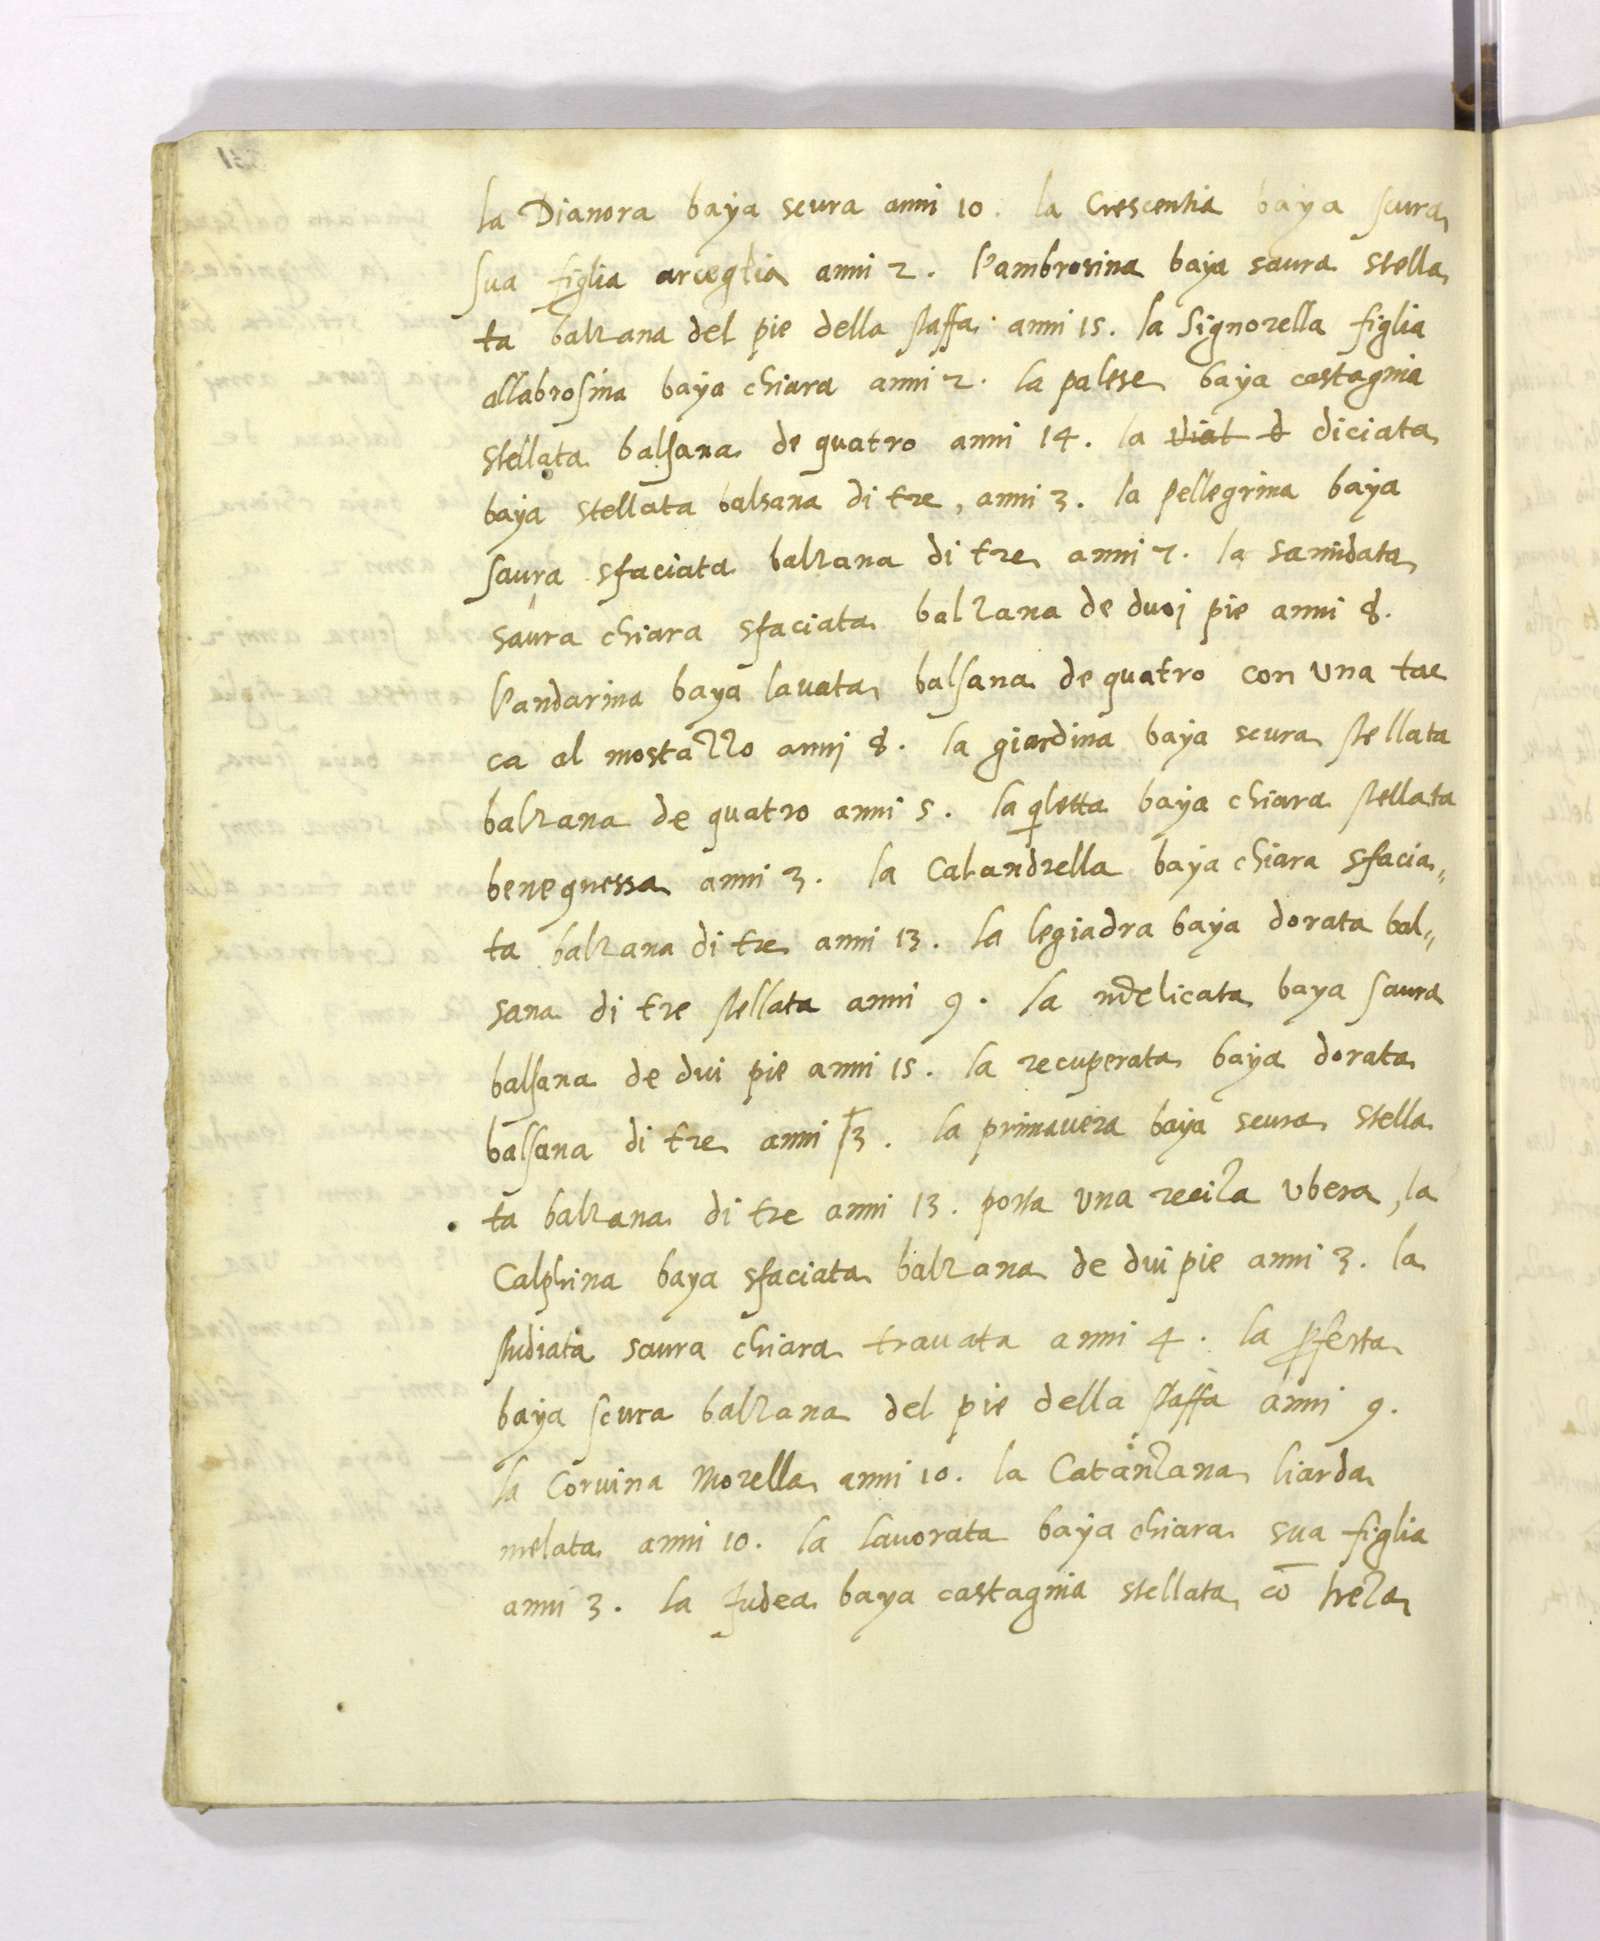 la Dianora baya scura anni 10. la Crescentia baya scura
sua figlia arceglia anni 2. l'ambrosina baya saura stella
ta balzana del pie della staffa anni 15. la Signorella figlia
allabrosina baya chiara anni 2. la palese baya castagnia
stellata balsana de quatro anni 14. la diciata
baya stellata balsana di tre, anni 3. la pellegrina baya
saura sfaciata balzana di tre anni 7. la
saura chiara sfaciata balzana de duoj pie anni 8.
l'andarina baya lavata balsana de quatro con una tac
ca al mostazzo annj 8. la giardina baya scura stellata
balzana de quatro anni 5. la baya chiara stellata
anni 3. la Calandrella baya chiara sfacia„
ta balzana di tre anni 13. la legiadra baya dorata bal„
sana di tre stellata anni 9. la baya saura
balsana de dui pie anni 15. la recuperata baya dorata
balsana di tre anni 13. la primavera baya scura stella
ta balzana di tre anni 13. porta una ubera, la
Calphina baya sfaciata balzana de dui pie anni 3. la
studiata saura chiara travata anni 4. la
baya scura balzana del pie della staffa anni 9.
la Corvina Morella anni 10. la Catanzana liarda
melata anni 10. la lavorata baya chiara sua figlia
anni 3. la Judea baya castagnia stellata cō treza